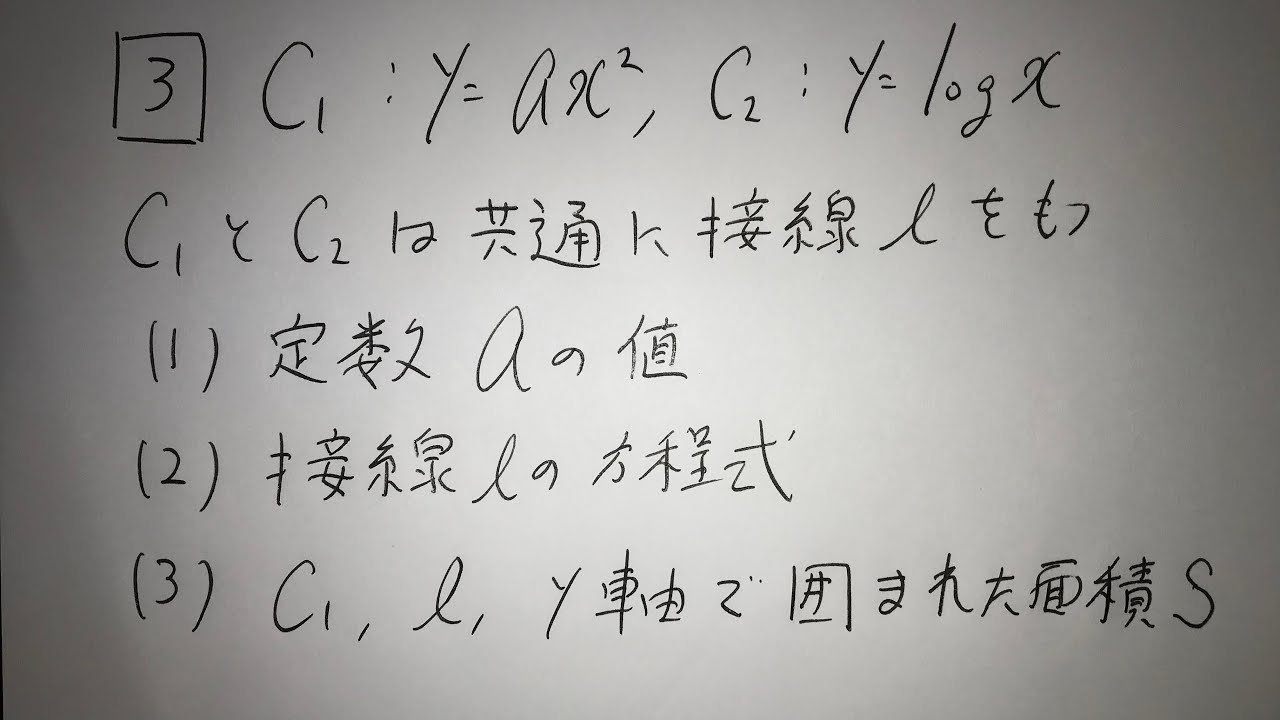 3 C₁:y=ax², C₂:y=logx
C₁とC₂は共通に接線lをもつ
(1) 定数aの値
(2) 接線lの方程式
(3) C₁, l, y軸で囲まれた面積S